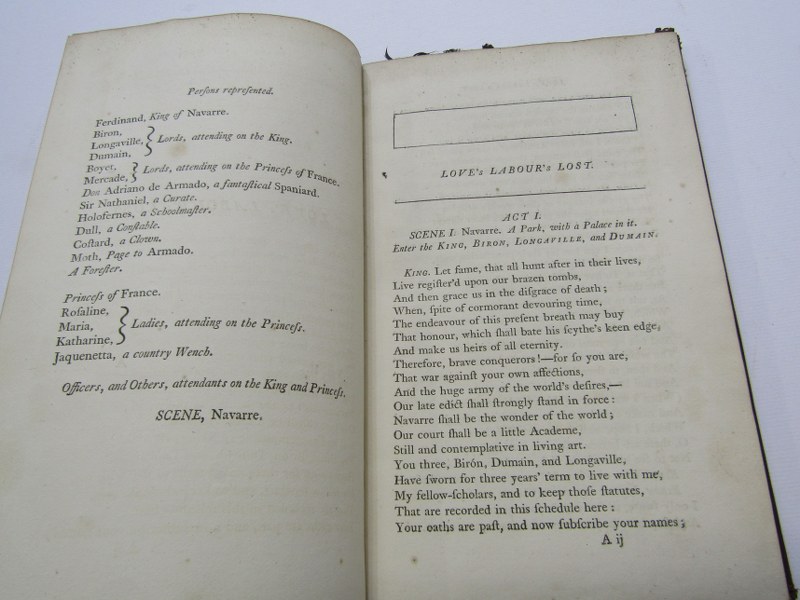 Perſons repreſented.
Ferdinand, King of Navarre.
Biron,
Longaville,
Dumain,
Lords, attending on the King.
Boyet,
Mercade,
Lords, attending on the Princeſs of France.
Don Adriano de Armado, a fantaſtical Spaniard.
Sir Nathaniel, a Curate.
Holofernes, a Schoolmaſter.
Dull, a Conſtable.
Coſtard, a Clown.
Moth, Page to Armado.
A Foreſter.
Princeſs of France.
Roſaline,
Maria,
Katharine,
Ladies, attending on the Princeſs.
Jaquenetta, a country Wench.
Officers, and Others, attendants on the King and Princeſs.
SCENE, Navarre.
LOVE's LABOUR's LOST.
ACT I.
SCENE I. Navarre. A Park, with a Palace in it.
Enter the KING, BIRON, LONGAVILLE, and DUMAIN.
KING. Let fame, that all hunt after in their lives,
Live regiſter'd upon our brazen tombs,
And then grace us in the diſgrace of death;
When, ſpite of cormorant devouring time,
The endeavour of this preſent breath may buy
That honour, which ſhall bate his ſcythe's keen edge,
And make us heirs of all eternity.
Therefore, brave conquerors!—for ſo you are,
That war againſt your own affections,
And the huge army of the world's deſires,—
Our late edict ſhall ſtrongly ſtand in force:
Navarre ſhall be the wonder of the world;
Our court ſhall be a little Academe,
Still and contemplative in living art.
You three, Birón, Dumain, and Longaville,
Have ſworn for three years' term to live with me,
My fellow-ſcholars, and to keep thoſe ſtatutes,
That are recorded in this ſchedule here:
Your oaths are paſt, and now ſubſcribe your names;
A ij